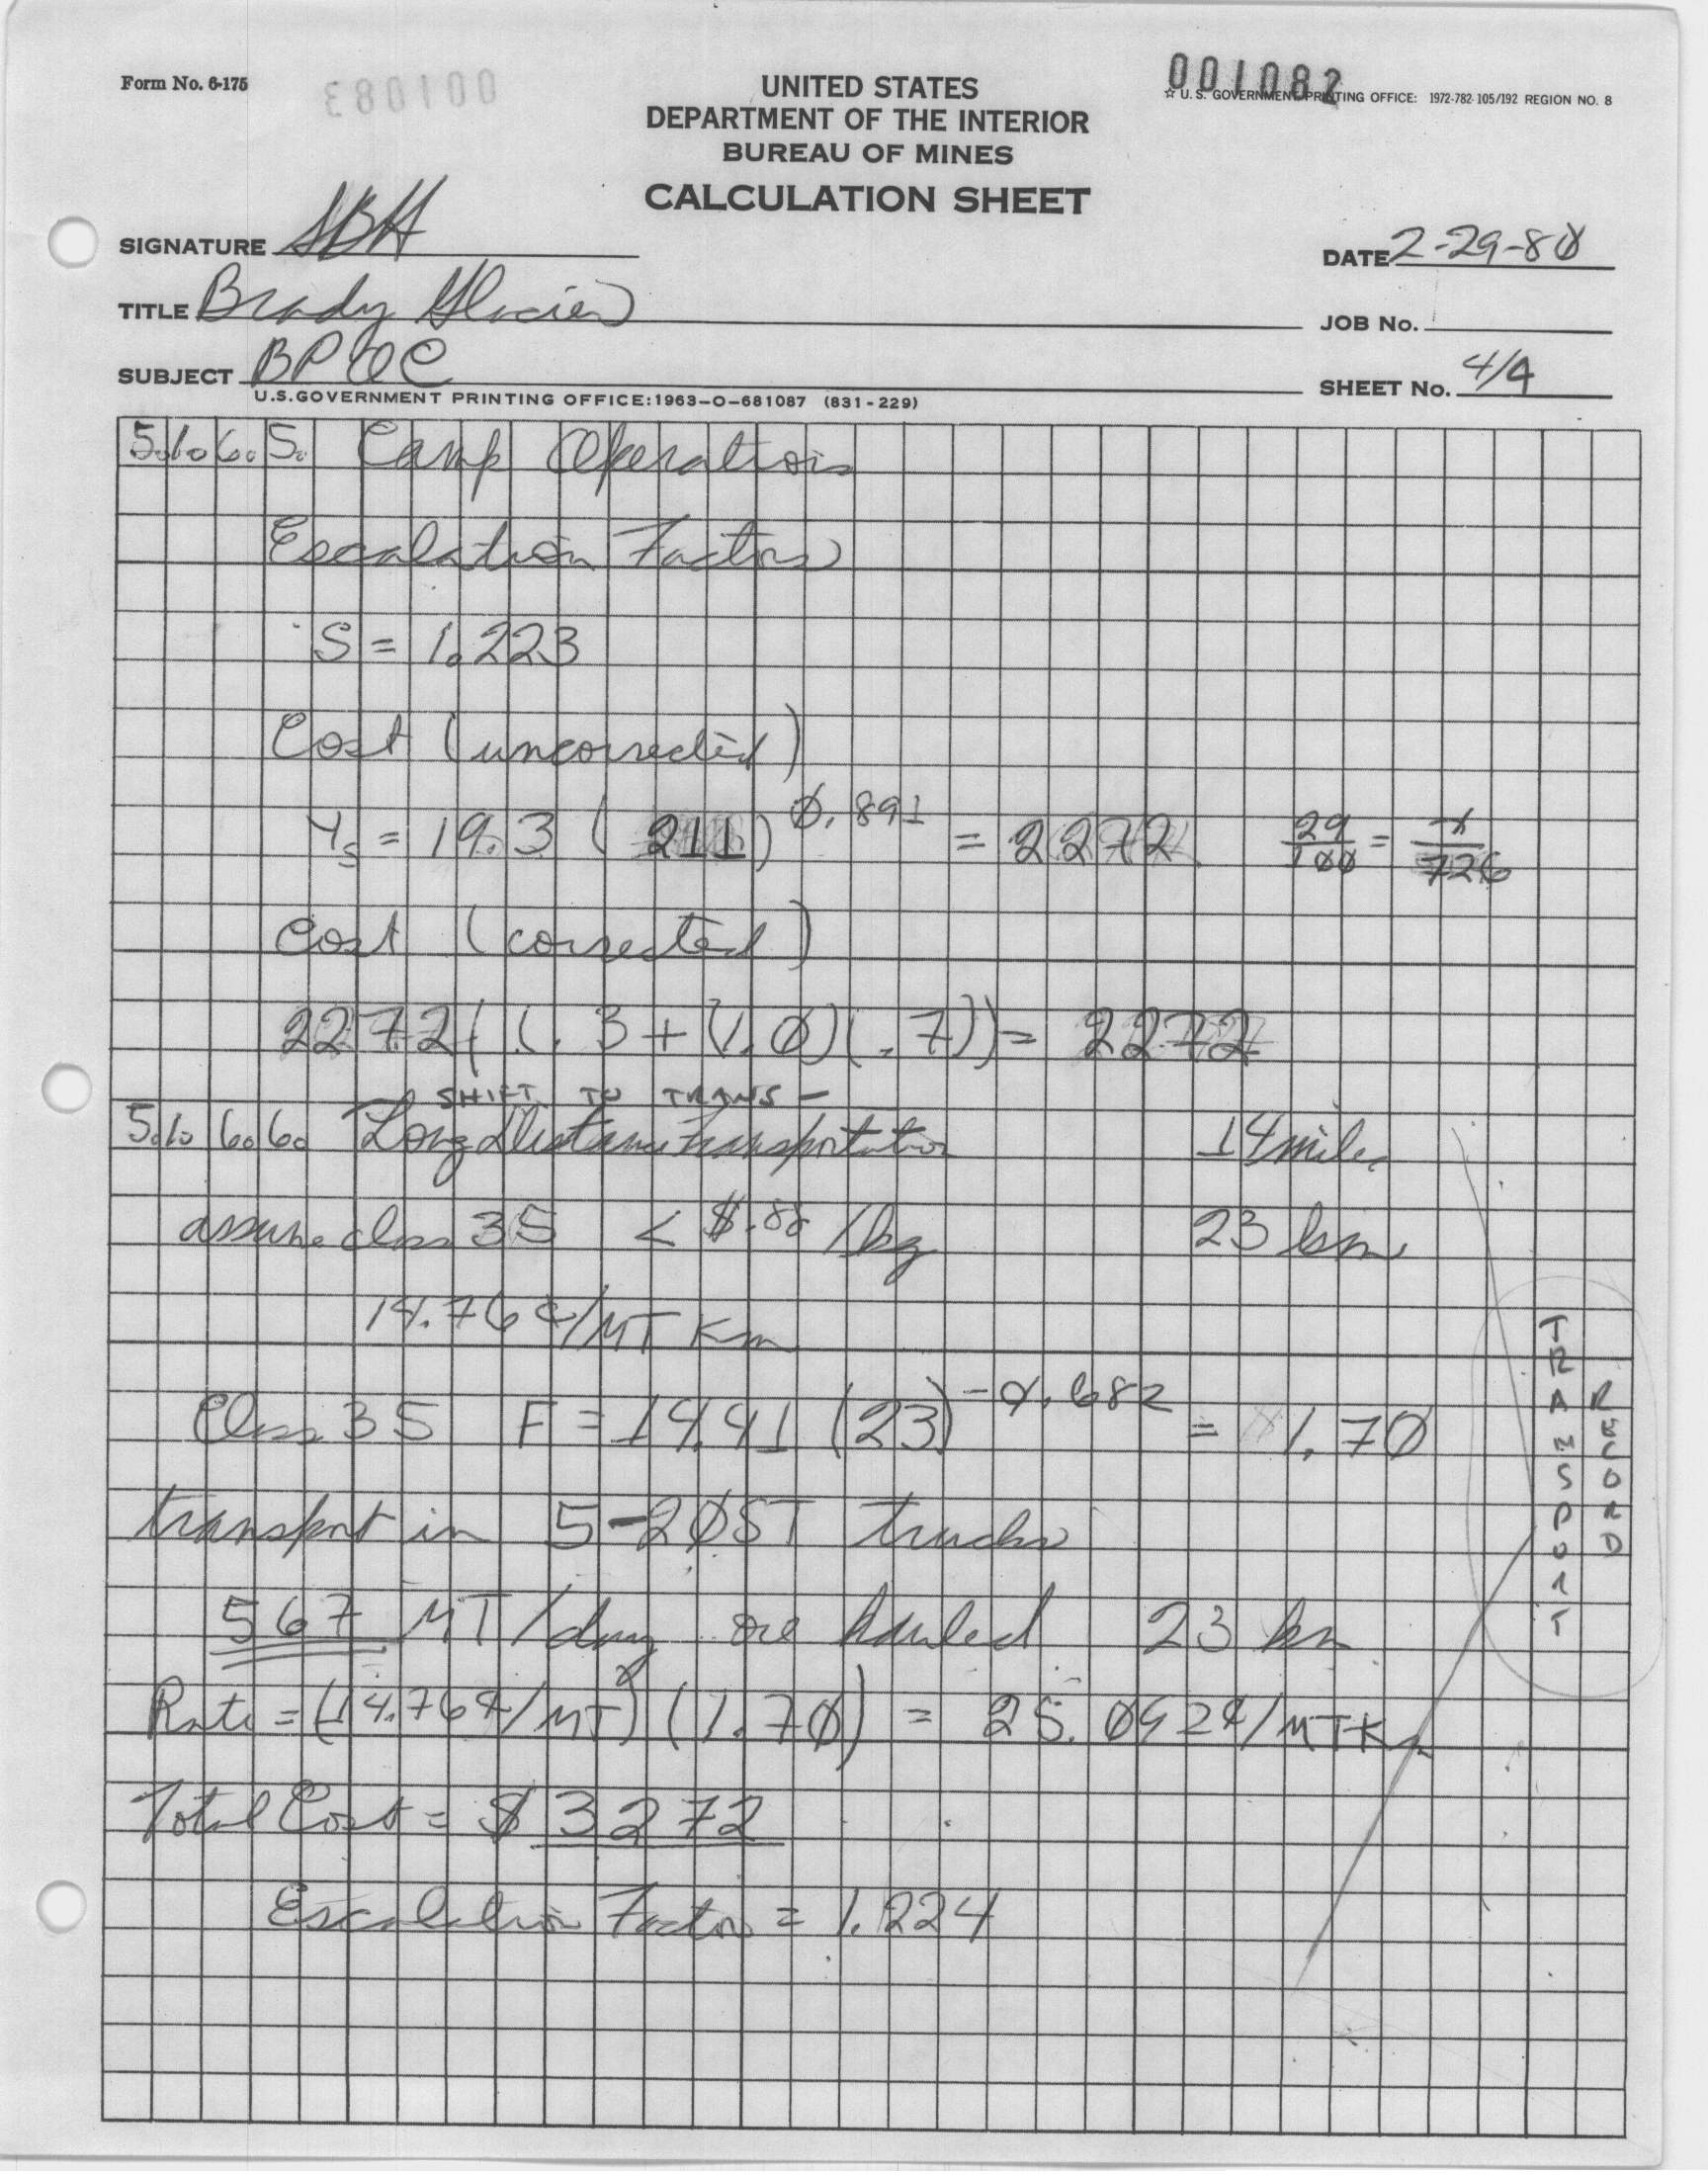 Form No. 6-175
001083
001082
☆ U. S. GOVERNMENT PRINTING OFFICE: 1972-782-105/192 REGION NO. 8
UNITED STATES
DEPARTMENT OF THE INTERIOR
BUREAU OF MINES
CALCULATION SHEET
SIGNATURE SBH
DATE 2-29-80
TITLE Brady Glacier
JOB No.
SUBJECT BPOC
SHEET No. 4/4
U.S.GOVERNMENT PRINTING OFFICE:1963-O-681087 (831-229)
5.1.6.5. Camp Operations
Escalation Factors
S = 1.223
Cost (uncorrected)
Ys = 19.3 (211)^0.891 = 2272 29/100 = x/726
Cost (corrected)
2272((.3 + (1.0)(.7)) = 2272
SHIFT TO TRANS -
5.1.6.6. Long Distance Transportation 14 miles
assume class 35 < $.88/kg 23 km
14.76¢/MT Km
Class 35 F = 14.41 (23)^-0.682 = 1.70
transport in 5-20ST trucks
567 MT/day ore hauled 23 km
Rate = (14.76¢/MT) (1.70) = 25.092¢/MTKm
Total Cost = $ 3272
Escalation Factor = 1.224
TRANSPORT
RECORD